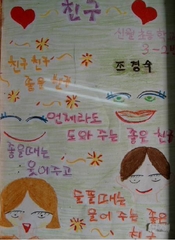 친구
3-2
친구 친구
좋은 친구
조경수
언제라도
도와 주는 좋은 친
좋을때는
웃어주고
슬플때는
울어 주는 좋은
친구